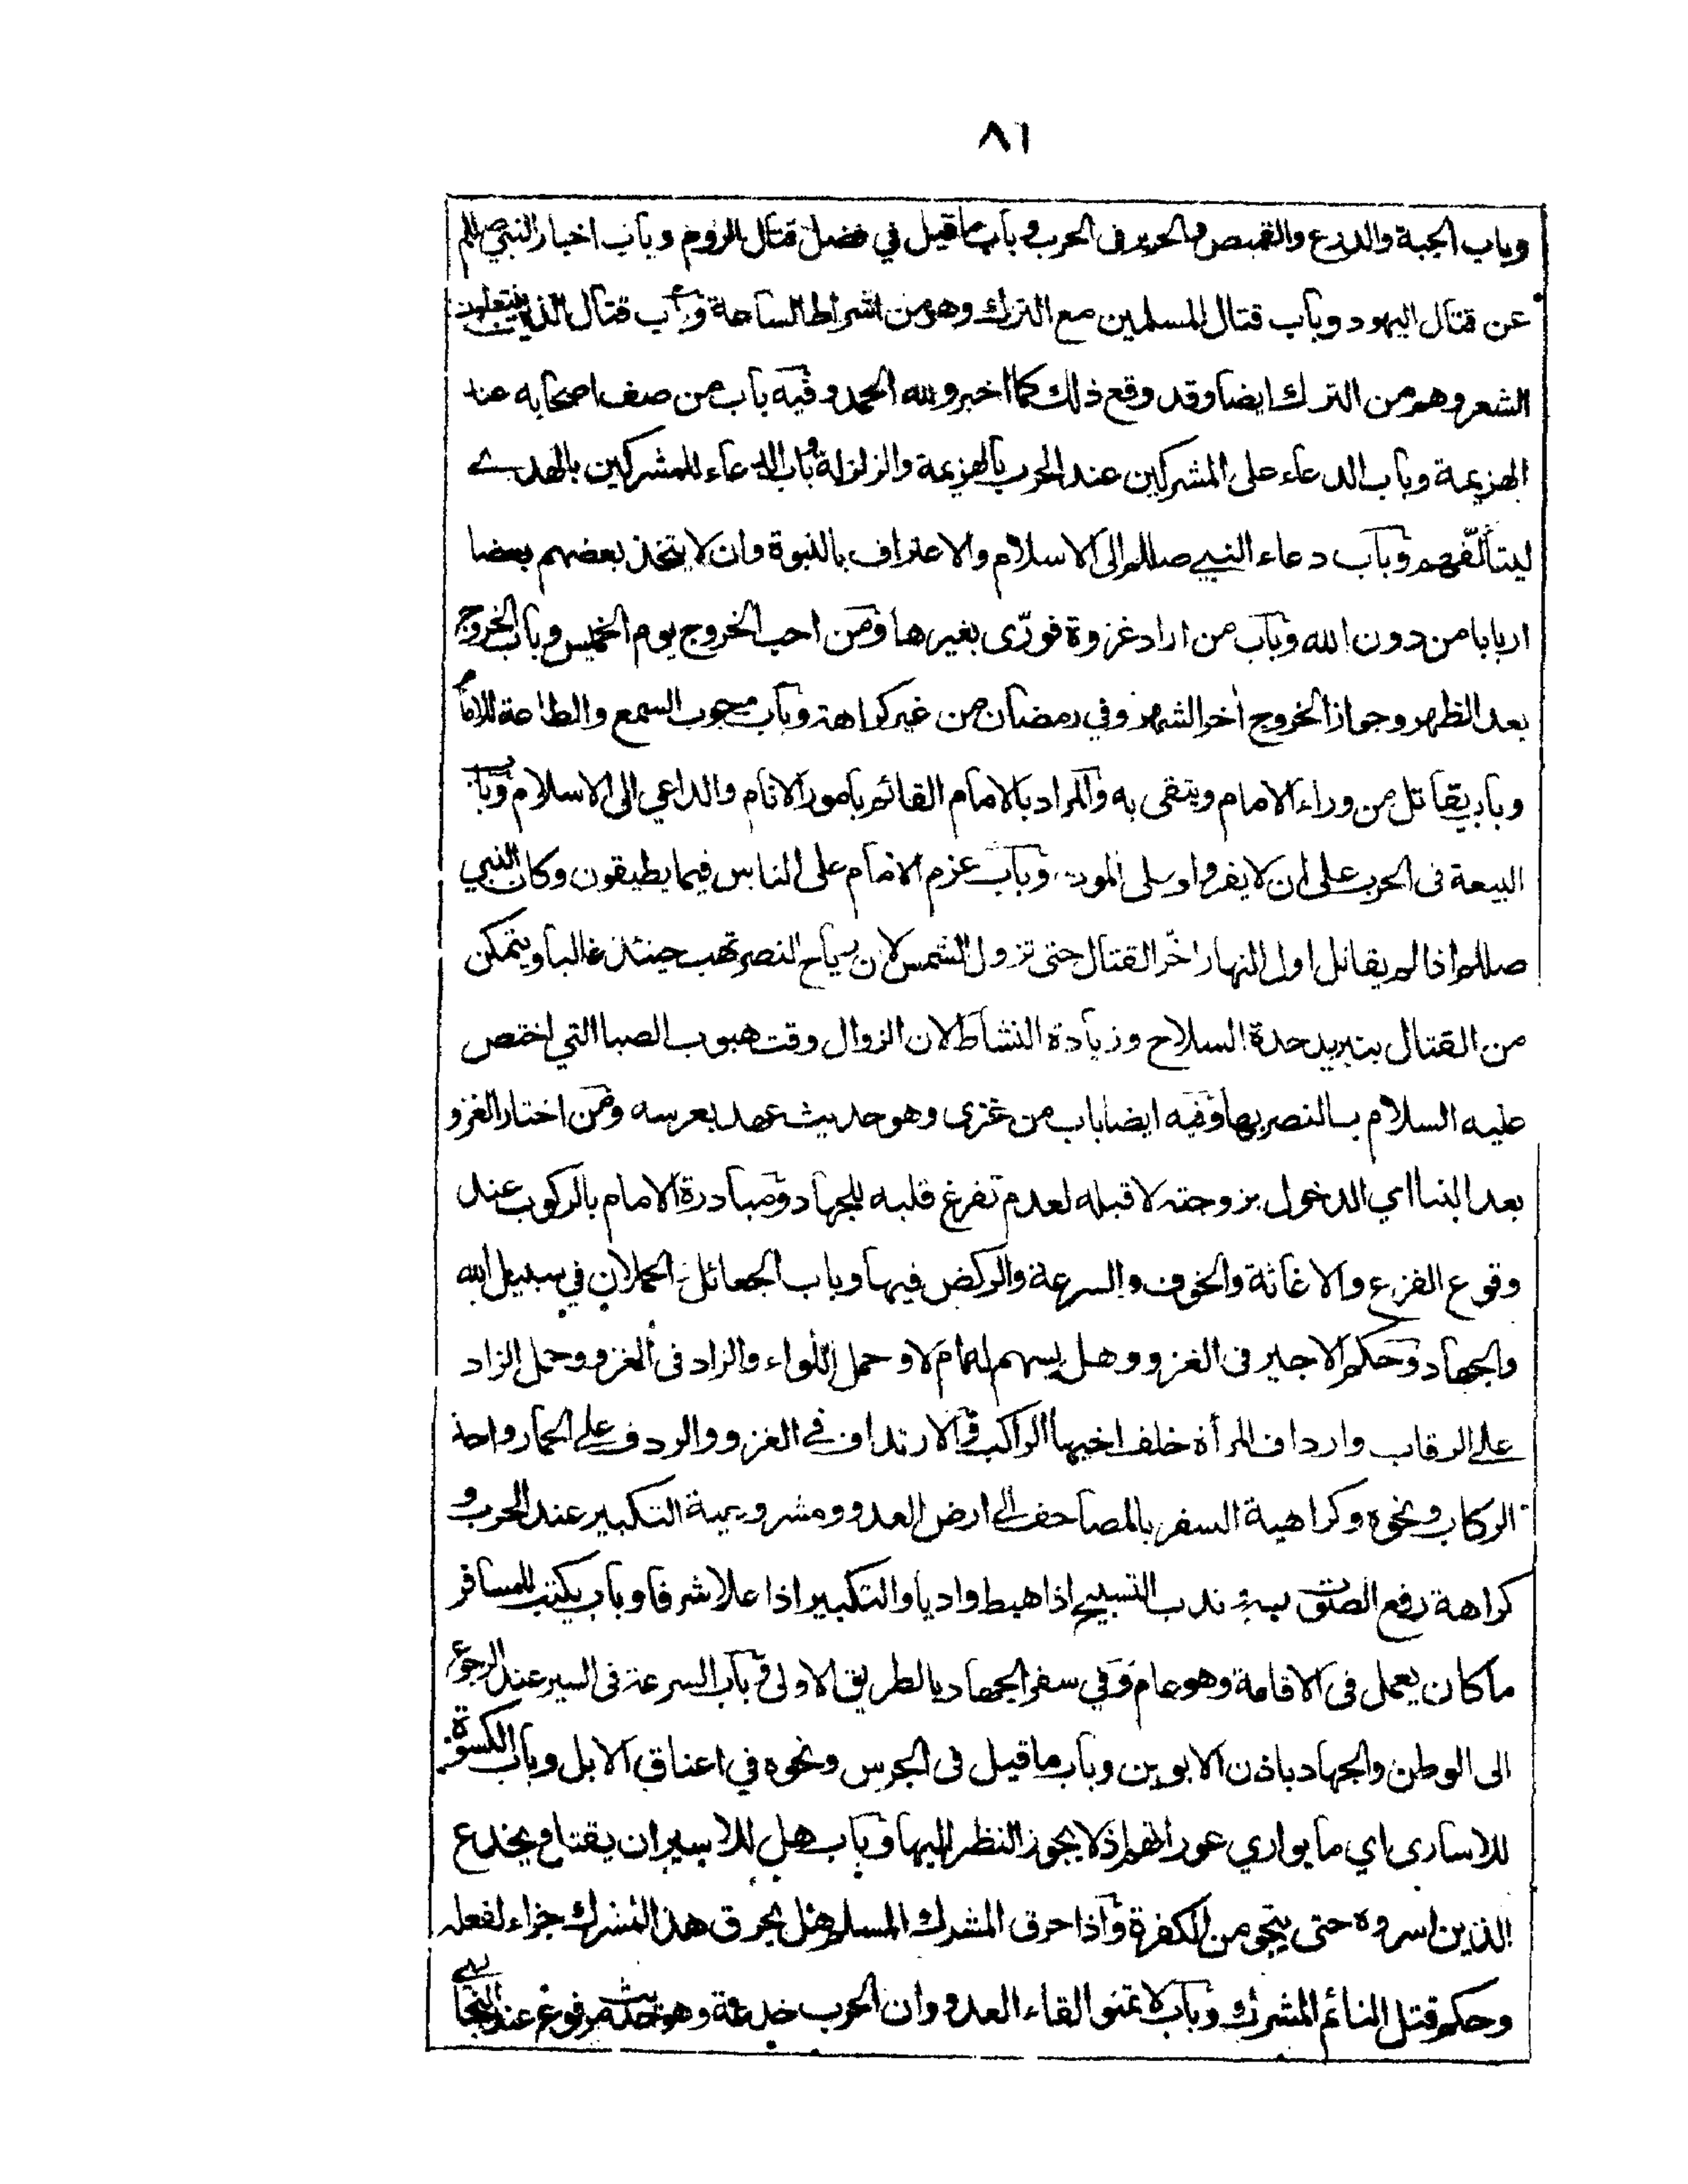 ٨٦
وباب الجبة والدرع والقميص والحرير فى الحرب وباب ما قيل في فضل قتال الروم وباب اخبار النبي صللم
عن قتال اليهود وباب قتال المسلمين مع الترك وهو من اشراط الساعة وباب قتال الذين ينتعلون
الشعر وهم من الترك ايضا وقد وقع ذلك كما اخبر ولله الحمد وفيه باب من صف اصحابه عند
الهزيمة وباب الدعاء على المشركين عند الحرب بالهزيمة والزلزلة وباب الدعاء للمشركين بالهدے
ليتألّفهم وباب دعاء النبي صللم الى الاسلام والاعتراف بالنبوة وان لا يتخذ بعضهم بعضا
اربابا من دون الله وباب من اراد غزوة فورّى بغيرها ومن احب الخروج يوم الخميس وباب الخروج
بعد الظهر وجواز الخروج أخر الشهر وفي رمضان من غير كراهة وباب وجوب السمع والطاعة للامام
وباب يقاتل من وراء الامام ويتقى به والمراد بالامام القائم بامور الانام والداعي الى الاسلام وباب
البيعة فى الحرب على ان لا يفروا وعلى الموت وباب عزم الامام على الناس فيما يطيقون وكان النبي
صللم اذا لم يقاتل اول النهار اخّر القتال حتى تزول الشمس لان رياح النصر تهب حينئذ غالبا ويتمكن
من القتال بتبريد حدة السلاح وزيادة النشاط لان الزوال وقت هبوب الصبا التي اختص
عليه السلام بالنصر بها وفيه ايضا باب من غزى وهو حديث عهد بعرسه ومن اختار الغزو
بعد البنا اي الدخول بزوجته لا قبله لعدم تفرغ قلبه للجهاد ومبادرة الامام بالركوب عند
وقوع الفزع والاغاثة والخوف والسرعة والركض فيها وباب الجعائل والحملان في سبيل الله
والجهاد وحكم الاجير فى الغزو وهل يسهم له ام لا وحمل اللواء والزاد فى الغزو وحمل الزاد
على الرقاب وارداف المرأة خلف اخيها الراكب والارتداف في الغزو والردف على الحمار واخذ
الركاب ونحوه وكراهية السفر بالمصاحف الى ارض العدو ومشروعية التكبير عند الحرب و
كراهة رفع الصوت به وندب التسبيح اذا هبط واديا والتكبير اذا علا شرفا وباب يكتب للمسافر
ما كان يعمل فى الاقامة وهو عام وفي سفر الجهاد بالطريق الاولى وباب السرعة فى السير عند الرجوع
الى الوطن والجهاد باذن الابوين وباب ما قيل فى الجرس ونحوه في اعناق الابل وباب الكسوة
للاسارى اي ما يواري عوراتهم اذ لا يجوز النظر اليها وباب هل للاسير ان يقتل او يخدع
الذين اسروه حتى ينجو من الكفرة واذا حرق المشرك المسلم هل يحرق هذا المشرك جزاء لفعله
وحكم قتل النائم المشرك وباب لا تمنوا لقاء العدو وان الحرب خدعة وهو حديث مرفوع عند البخاري